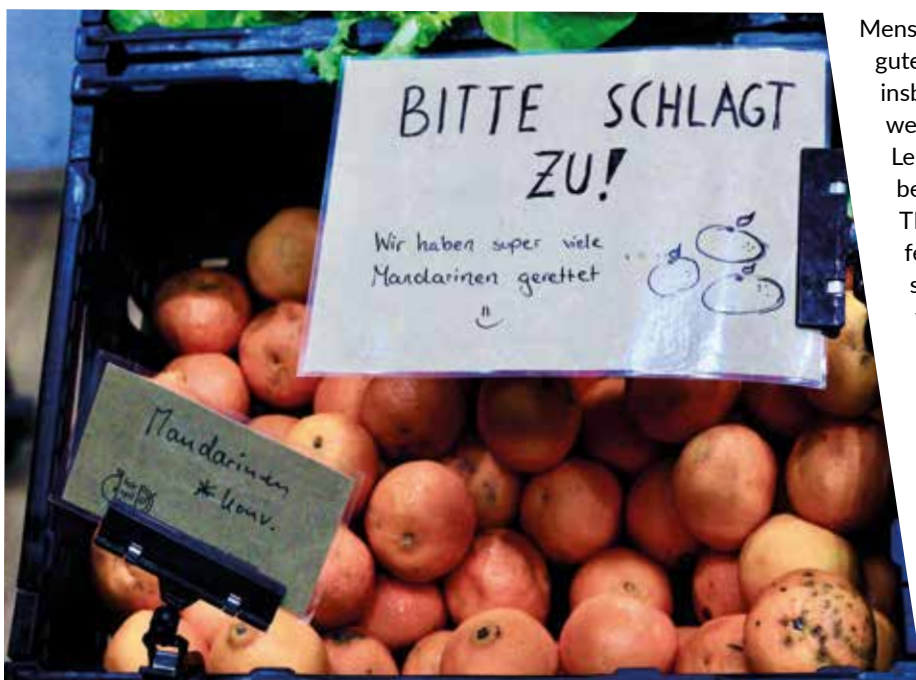 BITTE SCHLAGT
ZU!
Wir haben super viele
Mandarinen gerettet
Mandarinen
* konv.
Mens
gute
insb
we
Le
be
Th
fe
s